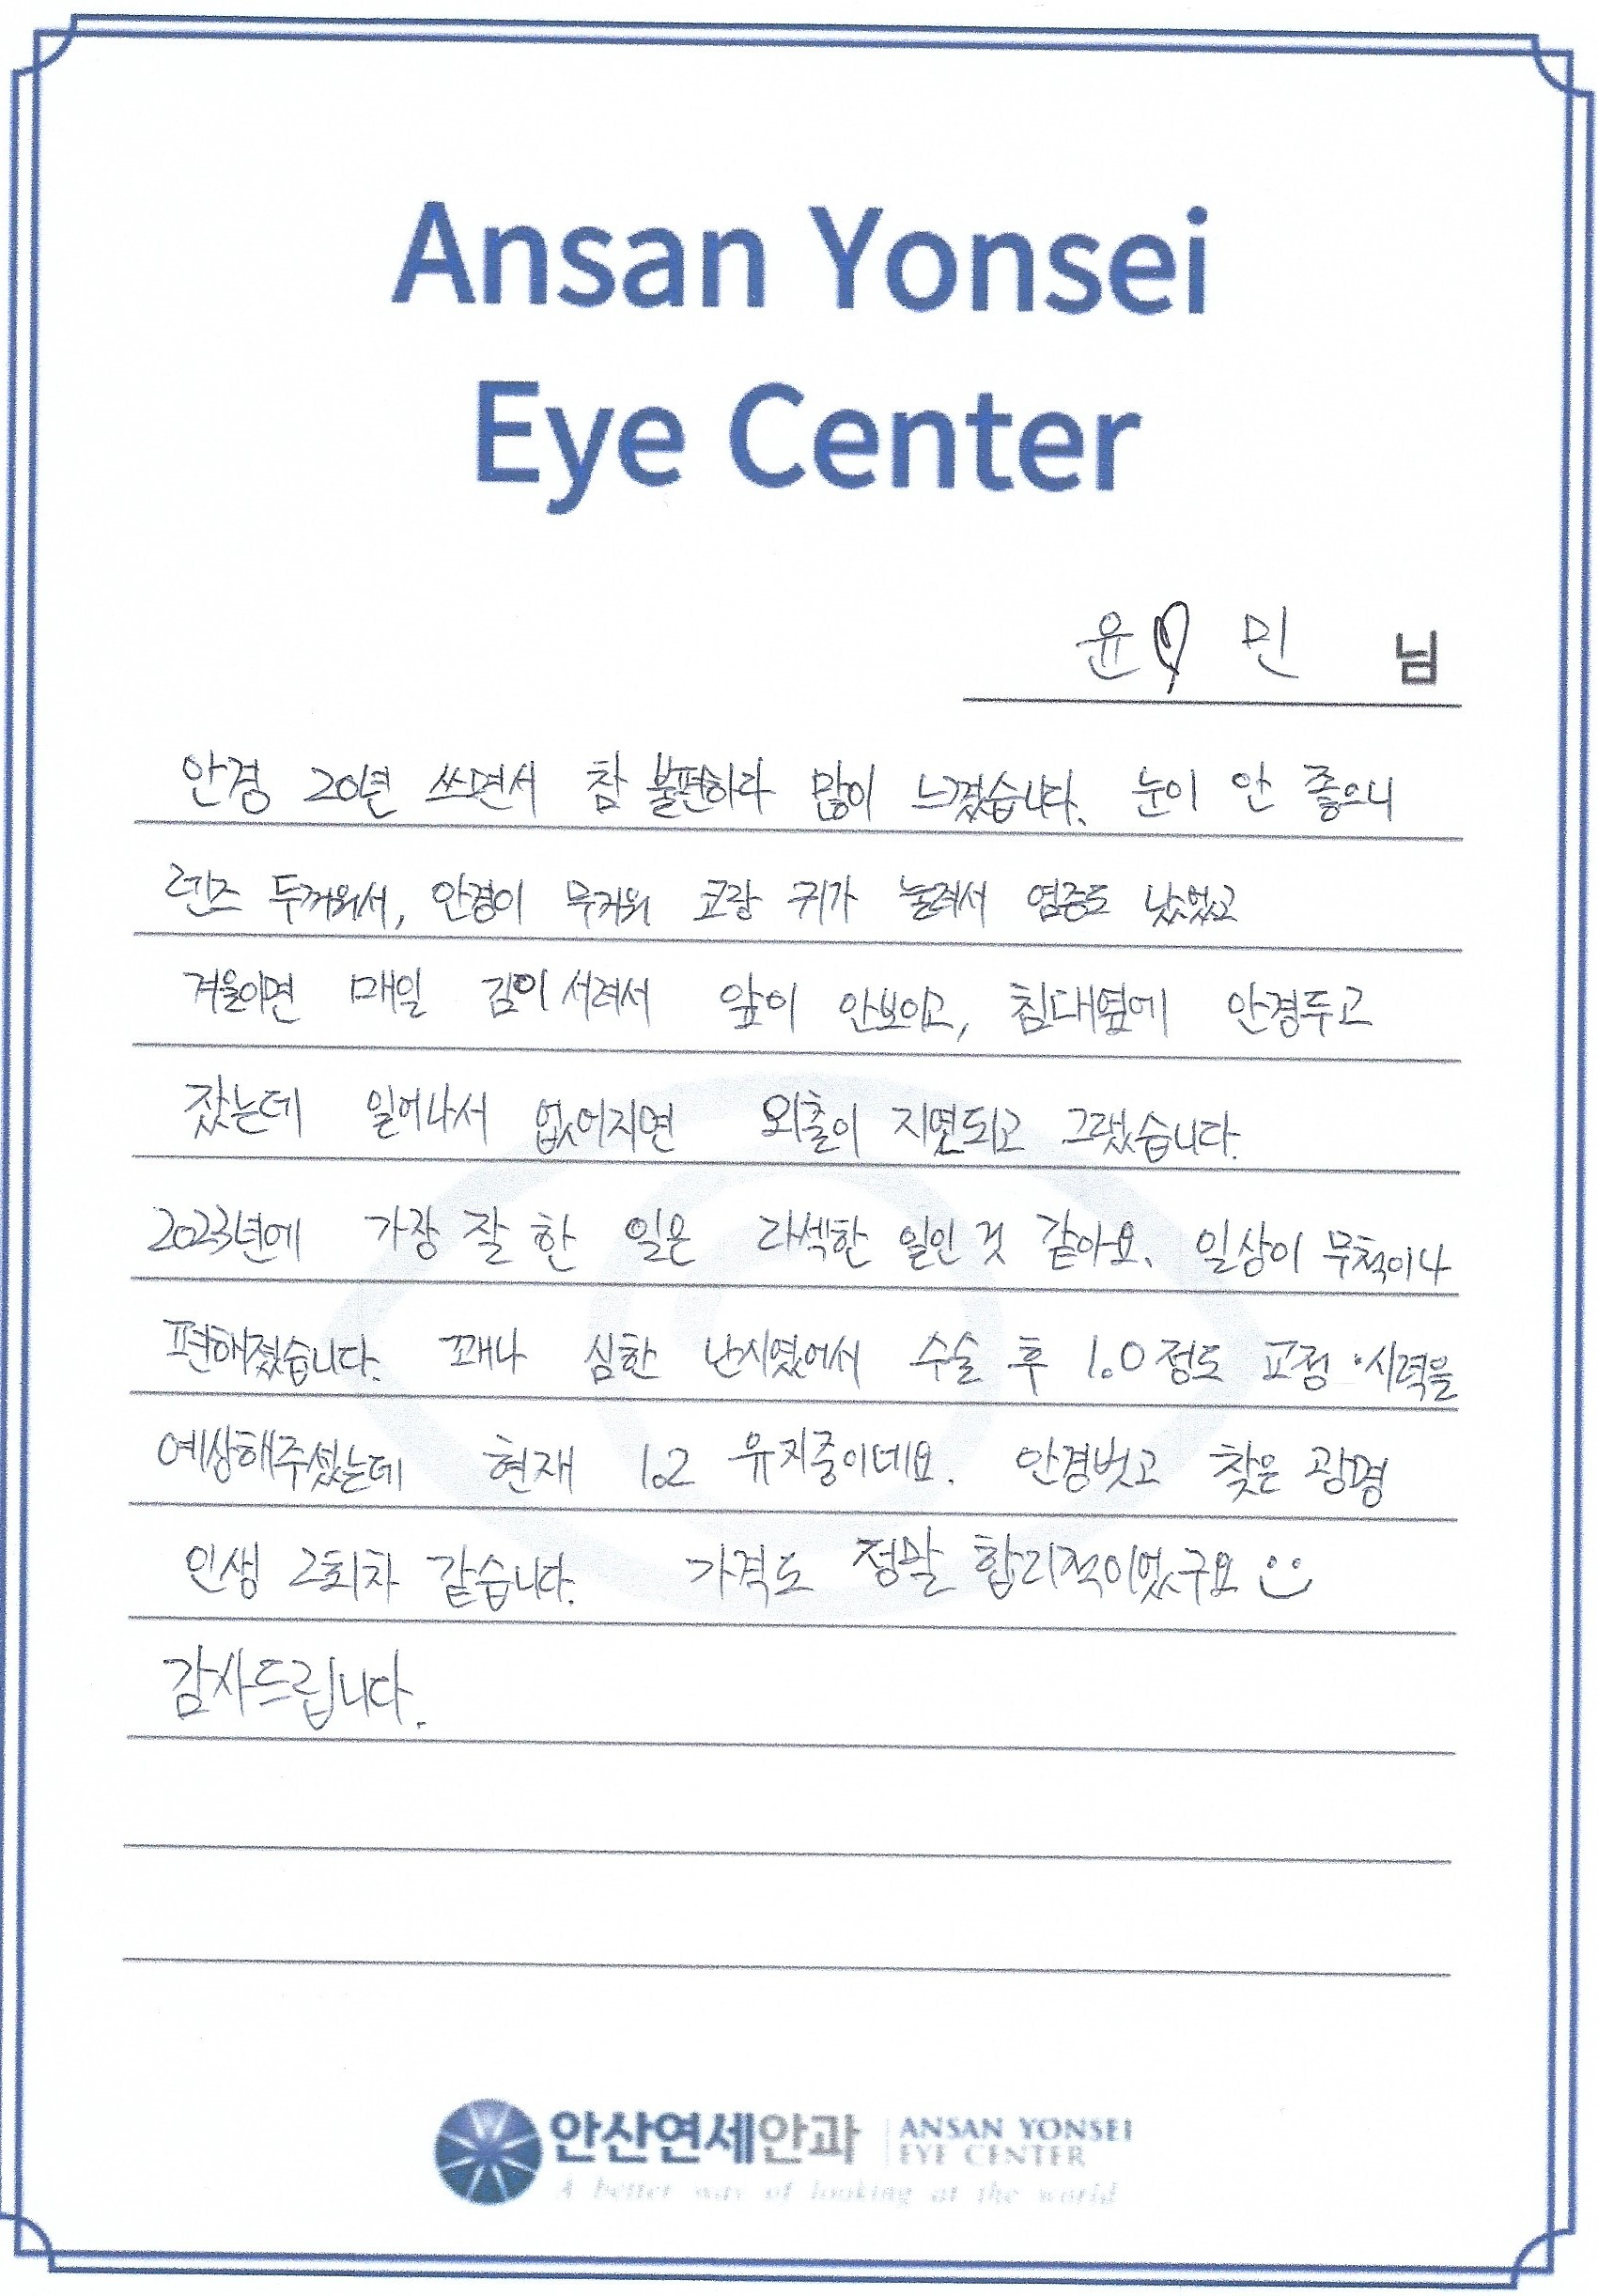 Ansan Yonsei
Eye Center
윤♡ 민 님
안경 20년 쓰면서 참 불편하다 많이 느꼈습니다. 눈이 안 좋으니
렌즈 두꺼워서, 안경이 무거워 코랑 귀가 눌려서 염증도 났었고
겨울이면 매일 김이 서려서 앞이 안보이고, 침대옆에 안경두고
잤는데 일어나서 없어지면 외출이 지연되고 그랬습니다.
2023년에 가장 잘 한 일은 라섹한 일인 것 같아요. 일상이 무척이나
편해졌습니다. 꽤나 심한 난시였어서 수술 후 1.0 정도 교정 시력을
예상해주셨는데 현재 1.2 유지중이네요. 안경벗고 찾은 광명
인생 2회차 같습니다. 가격도 정말 합리적이었구요
감사드립니다.
안산연세안과 ANSAN YONSEI
EYE CENTER
A better way of looking at the world